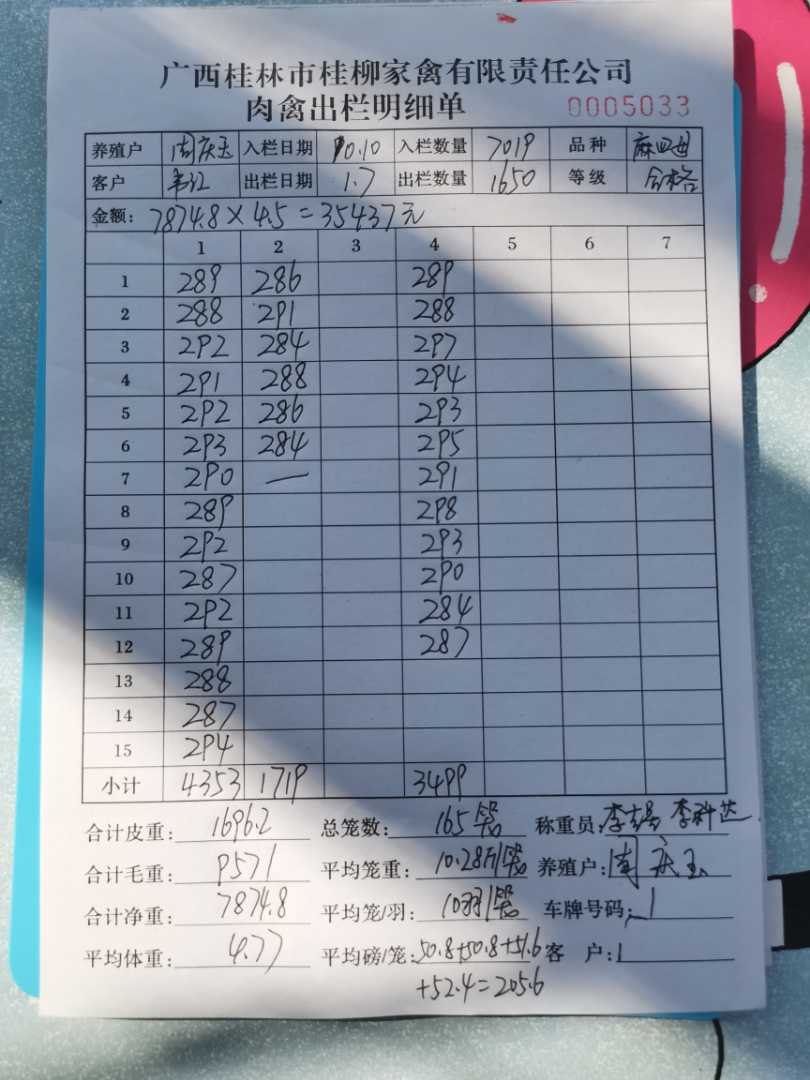 广西桂林市桂柳家禽有限责任公司
肉禽出栏明细单 0005033
养殖户 周庆玉 入栏日期 10.10 入栏数量 7019 品种
客户 出栏日期 1.7 出栏数量 1650 等级 合格
金额: 7874.8×4.5=35437元
1 2 3 4 5 6 7
1 289 286 289
2 288 291 288
3 292 284 297
4 291 288 294
5 292 286 293
6 293 284 295
7 290 — 291
8 289 298
9 292 293
10 287 290
11 292 284
12 289 287
13 288
14 287
15 294
小计 4353 1719 3499
合计皮重: 1696.2 总笼数: 165笼 称重员: 李科达
合计毛重: 9571 平均笼重: 10.28斤/笼 养殖户: 周庆玉
合计净重: 7874.8 平均笼/羽: 10羽/笼 车牌号码:
平均体重: 4.77 平均磅/笼: 50.8+50.8+51.6 客户:
+52.4=205.6